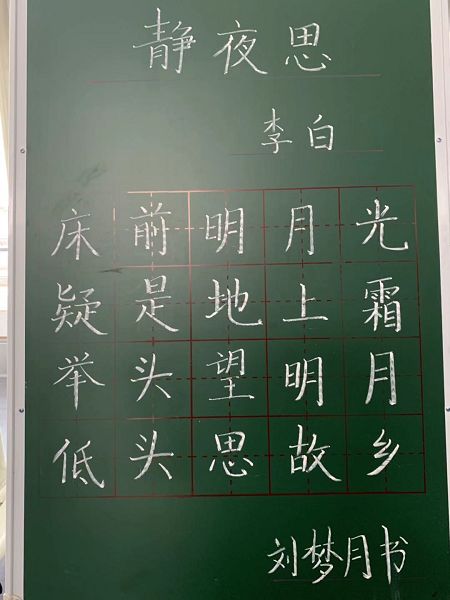 静夜思
李白
床前明月光
疑是地上霜
举头望明月
低头思故乡
刘梦月书